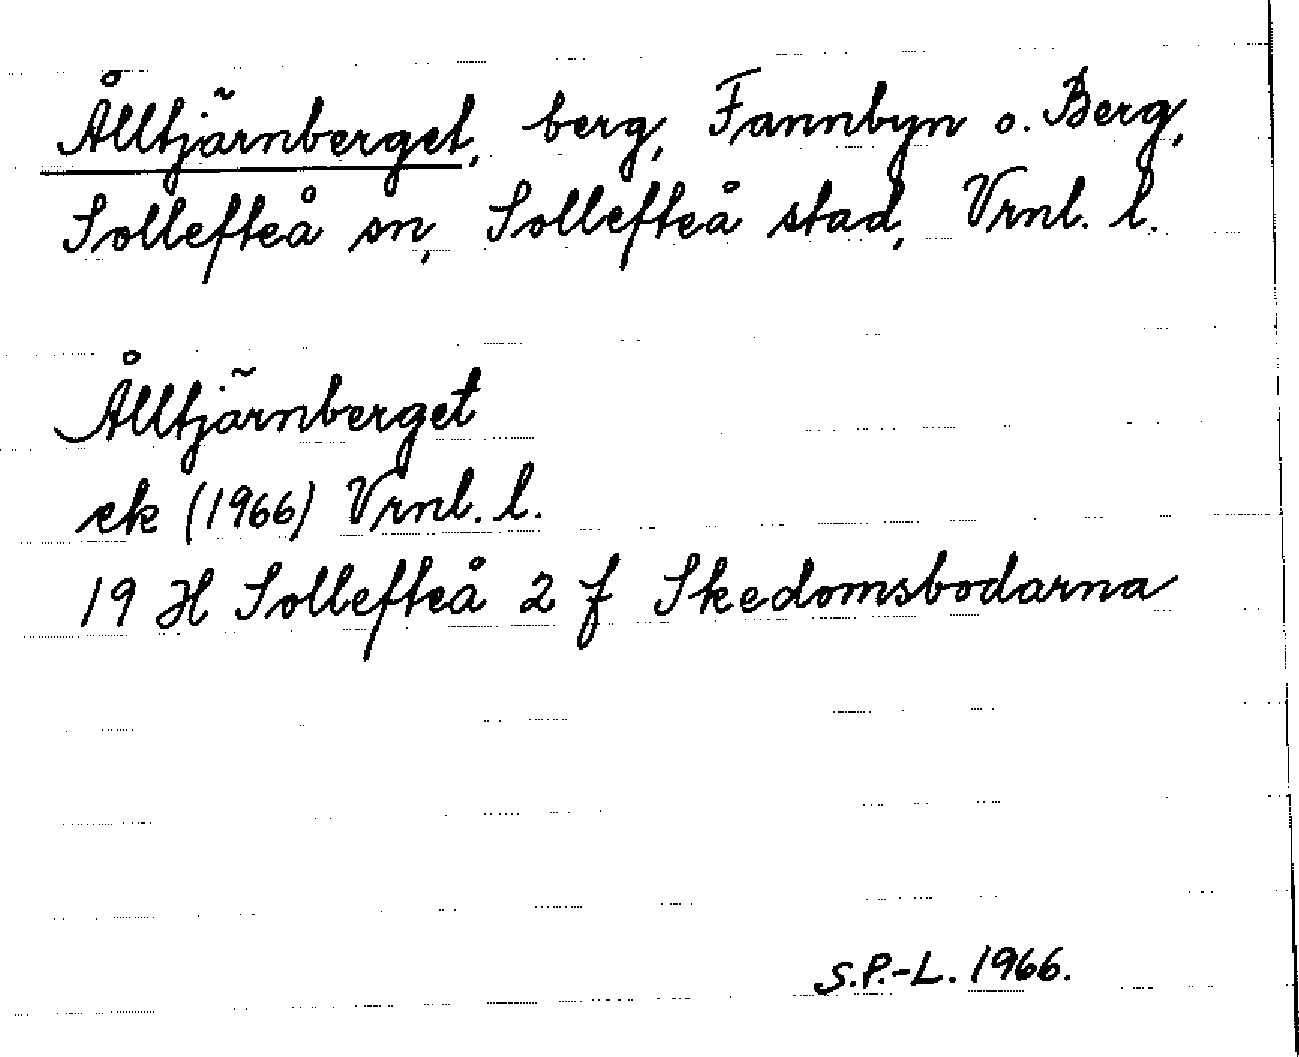 Ålltjärnberget, berg, Fannbyn o. Berg,
Sollefteå sn, Sollefteå stad, Vrnl. l.
Ålltjärnberget
ek (1966) Vrnl. l.
19 H Sollefteå 2 f Skedomsbodarna
S.P.-L. 1966.